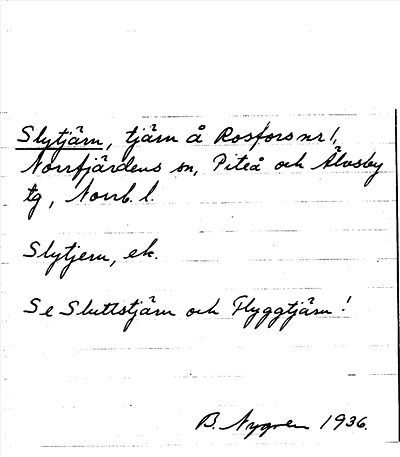 Slytjärn, tjärn å Rosfors nr 1,
Norrfjärdens sn, Piteå och Älvsby
tg, Norrb. l.
Slytjern, ek.
Se Sluttstjärn och Flyggtjärn!
B. Nygren 1936.